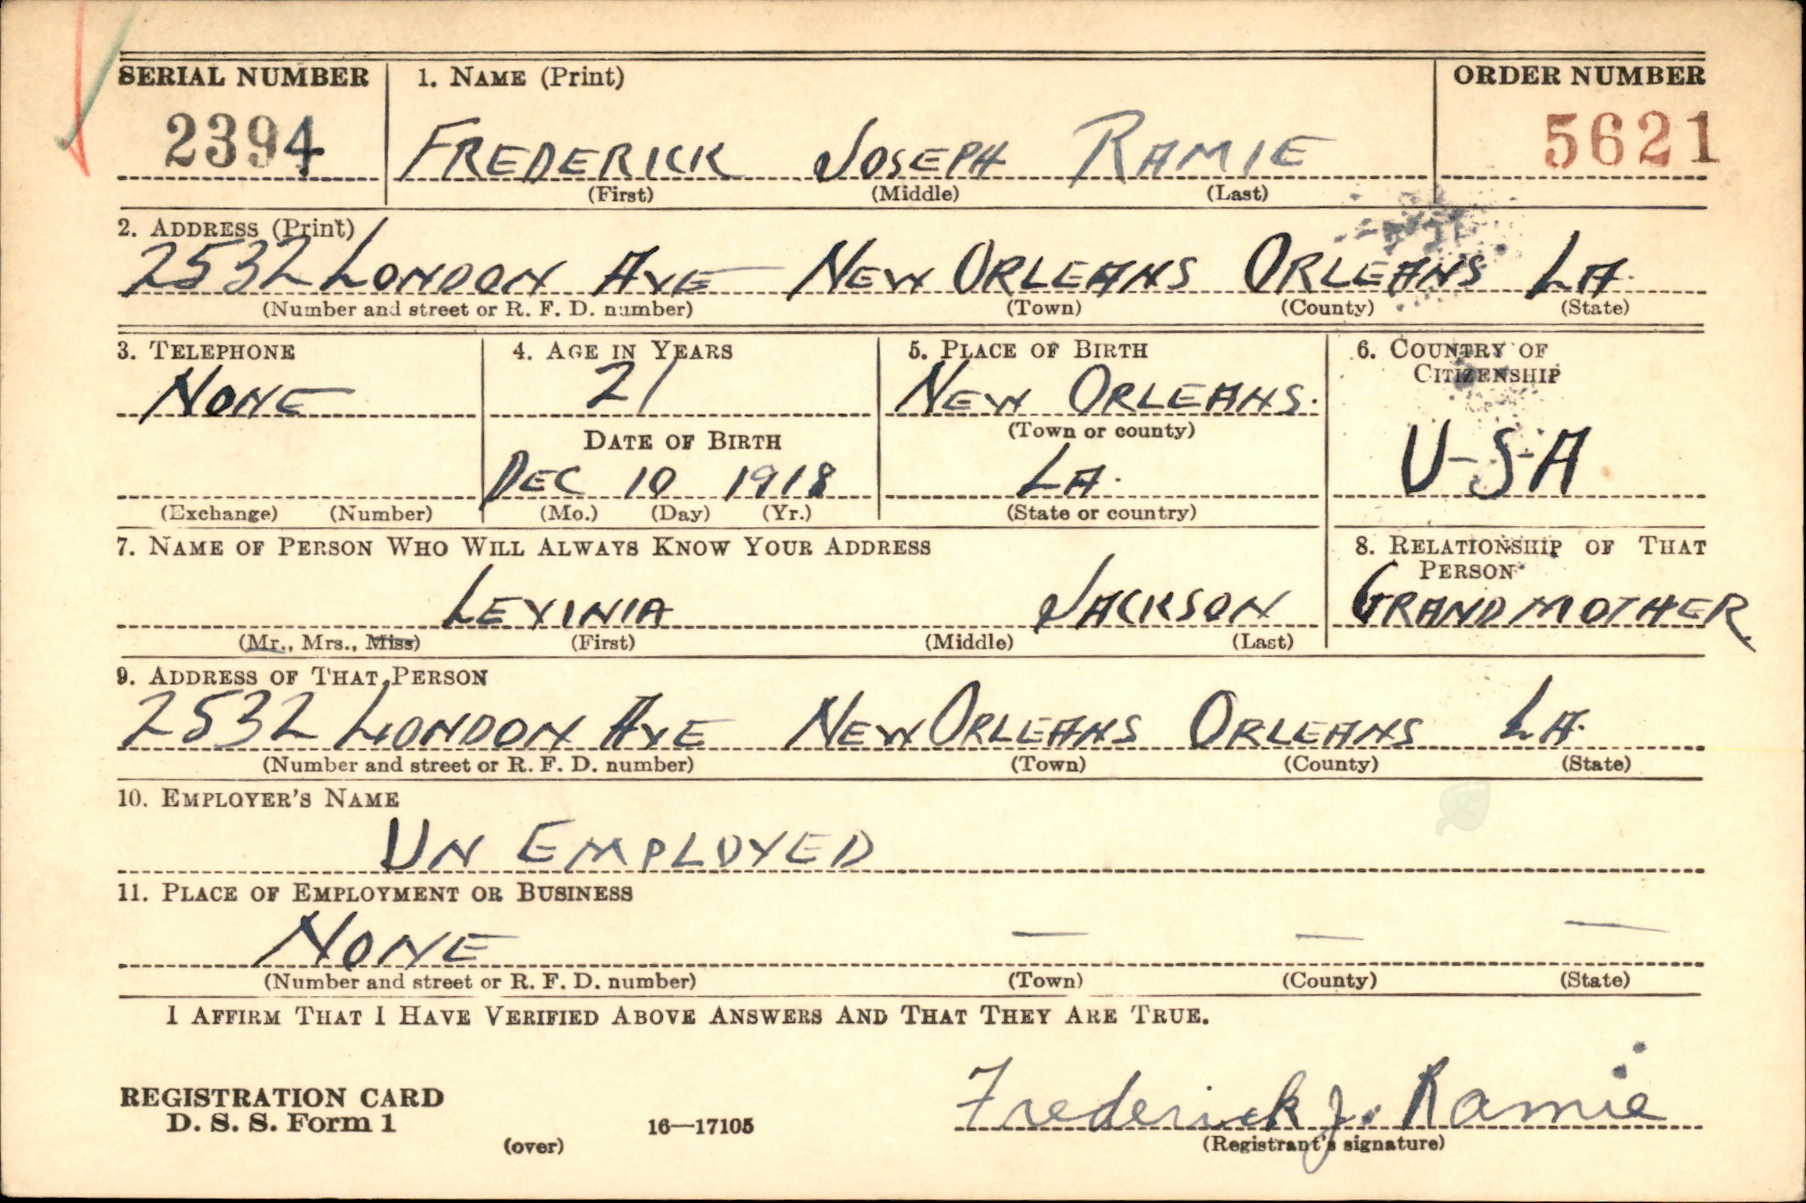 SERIAL NUMBER 1. NAME (Print) ORDER NUMBER
2394 FREDERICK JOSEPH RAMIE 5621
(First) (Middle) (Last)
2. ADDRESS (Print)
2532 LONDON AVE NEW ORLEANS ORLEANS LA.
(Number and street or R. F. D. number) (Town) (County) (State)
3. TELEPHONE 4. AGE IN YEARS 5. PLACE OF BIRTH 6. COUNTRY OF
CITIZENSHIP
NONE 21 NEW ORLEANS.
DATE OF BIRTH (Town or county)
DEC 10 1918 LA. U-S-A
(Exchange) (Number) (Mo.) (Day) (Yr.) (State or country)
7. NAME OF PERSON WHO WILL ALWAYS KNOW YOUR ADDRESS 8. RELATIONSHIP OF THAT
PERSON
LEVINIA JACKSON GRANDMOTHER.
(Mr., Mrs., Miss) (First) (Middle) (Last)
9. ADDRESS OF THAT PERSON
2532 LONDON AVE NEW ORLEANS ORLEANS LA.
(Number and street or R. F. D. number) (Town) (County) (State)
10. EMPLOYER'S NAME
UN EMPLOYED
11. PLACE OF EMPLOYMENT OR BUSINESS
NONE — — —
(Number and street or R. F. D. number) (Town) (County) (State)
I AFFIRM THAT I HAVE VERIFIED ABOVE ANSWERS AND THAT THEY ARE TRUE.
REGISTRATION CARD
D. S. S. Form 1 16—17105 Frederick J. Ramie
(over) (Registrant's signature)